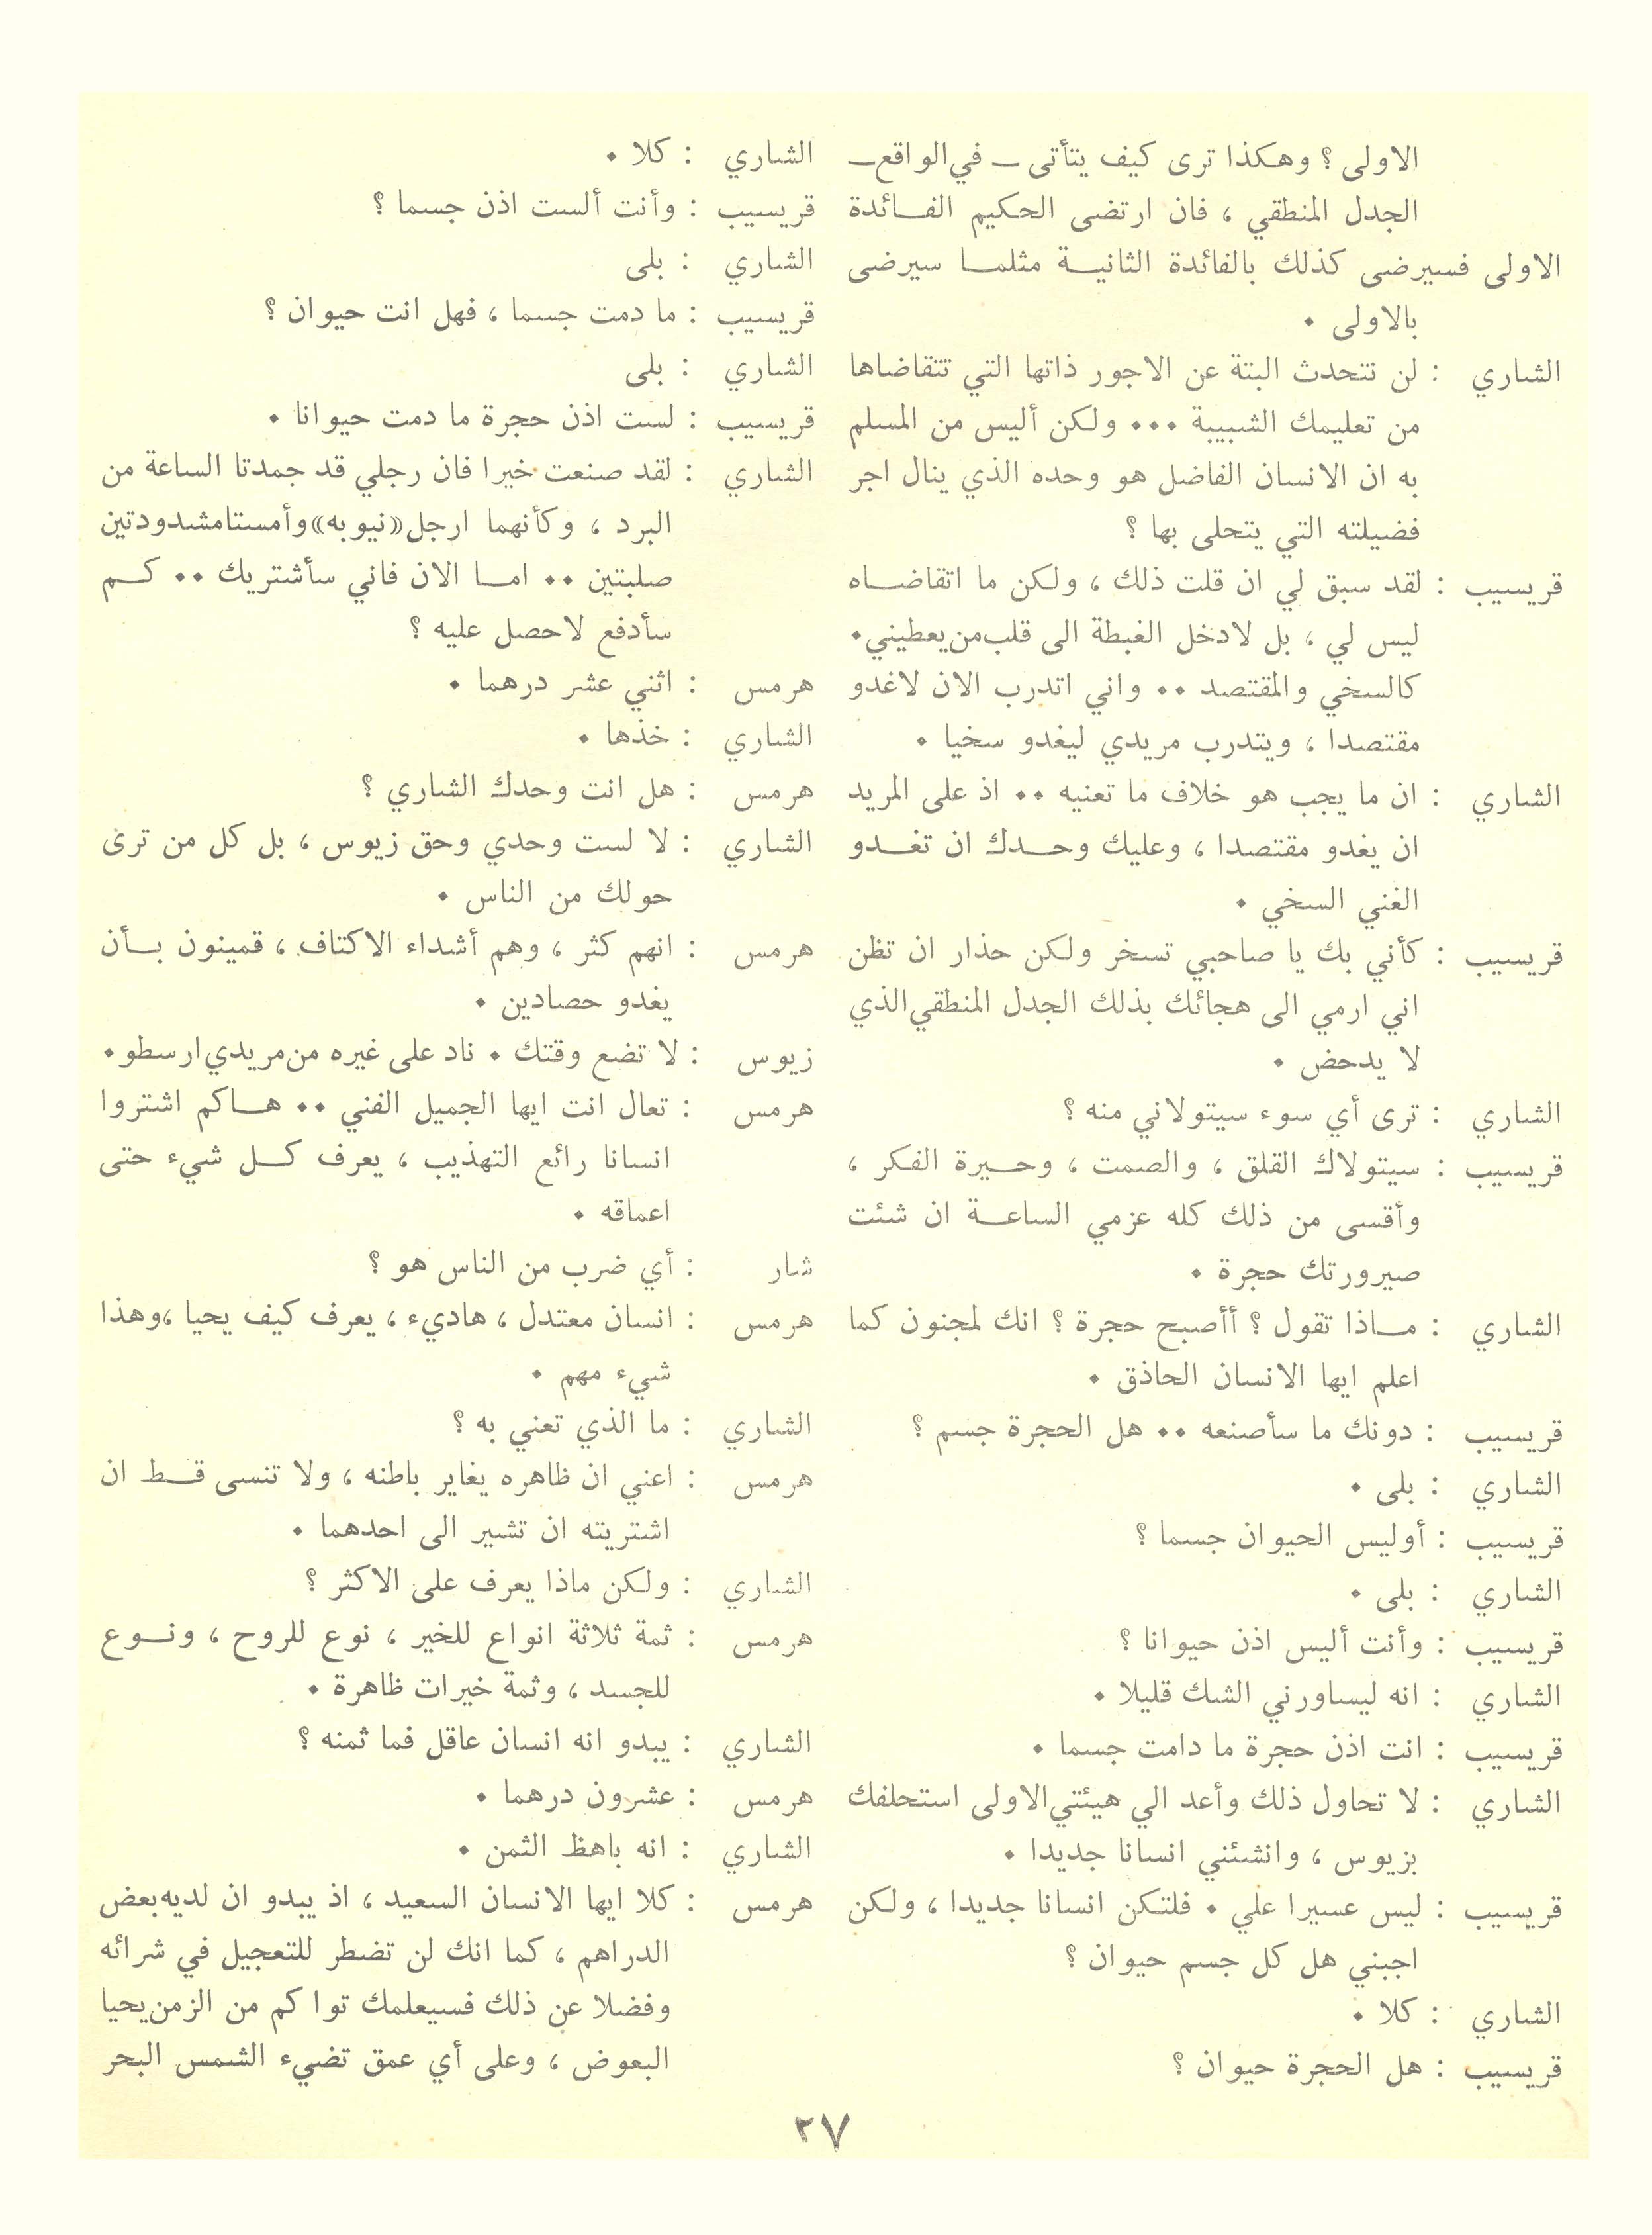 الاولى ؟ وهكذا ترى كيف يتأتى ــ في الواقع ــ
الجدل المنطقي ، فان ارتضى الحكيم الفــائدة
الاولى فسيرضى كذلك بالفائدة الثانيــة مثلمــا سيرضى
بالاولى .
الشاري : لن نتحدث البتة عن الاجور ذاتها التي تتقاضاها
من تعليمك الشبيبة ... ولكن أليس من المسلم
به ان الانسان الفاضل هو وحده الذي ينال اجر
فضيلته التي يتحلى بها ؟
قريسيب : لقد سبق لي ان قلت ذلك ، ولكن ما اتقاضــاه
ليس لي ، بل لادخل الغبطة الى قلب من يعطيني .
كالسخي والمقتصد .. واني اتدرب الان لاغدو
مقتصدا ، ويتدرب مريدي ليغدو سخيا .
الشاري : ان ما يجب هو خلاف ما تعنيه .. اذ على المريد
ان يغدو مقتصدا ، وعليك وحــدك ان تغــدو
الغني السخي .
قريسيب : كأني بك يا صاحبي تسخر ولكن حذار ان تظن
اني ارمي الى هجائك بذلك الجدل المنطقي الذي
لا يدحض .
الشاري : ترى أي سوء سيتولاني منه ؟
قريسيب : سيتولاك القلق ، والصمت ، وحــيرة الفكر ،
وأقسى من ذلك كله عزمي الساعــة ان شئت
صيرورتك حجرة .
الشاري : مــاذا تقول ؟ أأصبح حجرة ؟ انك لمجنون كما
اعلم ايها الانسان الحاذق .
قريسيب : دونك ما سأصنعه .. هل الحجرة جسم ؟
الشاري : بلى .
قريسيب : أوليس الحيوان جسما ؟
الشاري : بلى .
قريسيب : وأنت أليس اذن حيوانا ؟
الشاري : انه ليساورني الشك قليلا .
قريسيب : انت اذن حجرة ما دامت جسما .
الشاري : لا تحاول ذلك وأعد الي هيئتي الاولى استحلفك
بزيوس ، وانشئني انسانا جديدا .
قريسيب : ليس عسيرا علي . فلتكن انسانا جديدا ، ولكن
اجبني هل كل جسم حيوان ؟
الشاري : كلا .
قريسيب : هل الحجرة حيوان ؟
الشاري : كلا .
قريسيب : وأنت ألست اذن جسما ؟
الشاري : بلى
قريسيب : ما دمت جسما ، فهل انت حيوان ؟
الشاري : بلى
قريسيب : لست اذن حجرة ما دمت حيوانا .
الشاري : لقد صنعت خيرا فان رجلي قد جمدتا الساعة من
البرد ، وكأنهما ارجل «نيوبه» وأمستا مشدودتين
صلبتين .. امــا الان فاني سأشتريك .. كــم
سأدفع لاحصل عليه ؟
هرمس : اثني عشر درهما .
الشاري : خذها .
هرمس : هل انت وحدك الشاري ؟
الشاري : لا لست وحدي وحق زيوس ، بل كل من ترى
حولك من الناس .
هرمس : انهم كثر ، وهم أشداء الاكتاف ، قمينون بــأن
يغدو حصادين .
زيوس : لا تضع وقتك . ناد على غيره من مريدي ارسطو .
هرمس : تعال انت ايها الجميل الفني .. هــاكم اشتروا
انسانا رائع التهذيب ، يعرف كــل شيء حتى
اعماقه .
شار : أي ضرب من الناس هو ؟
هرمس : انسان معتدل ، هاديء ، يعرف كيف يحيا ، وهذا
شيء مهم .
الشاري : ما الذي تعني به ؟
هرمس : اعني ان ظاهره يغاير باطنه ، ولا تنسى قــط ان
اشتريته ان تشير الى احدهما .
الشاري : ولكن ماذا يعرف على الاكثر ؟
هرمس : ثمة ثلاثة انواع للخير ، نوع للروح ، ونــوع
للجسد ، وثمة خيرات ظاهرة .
الشاري : يبدو انه انسان عاقل فما ثمنه ؟
هرمس : عشرون درهما .
الشاري : انه باهظ الثمن .
هرمس : كلا ايها الانسان السعيد ، اذ يبدو ان لديه بعض
الدراهم ، كما انك لن تضطر للتعجيل في شرائه
وفضلا عن ذلك فسيعلمك توا كم من الزمن يحيا
البعوض ، وعلى أي عمق تضيء الشمس البحر
٢٧